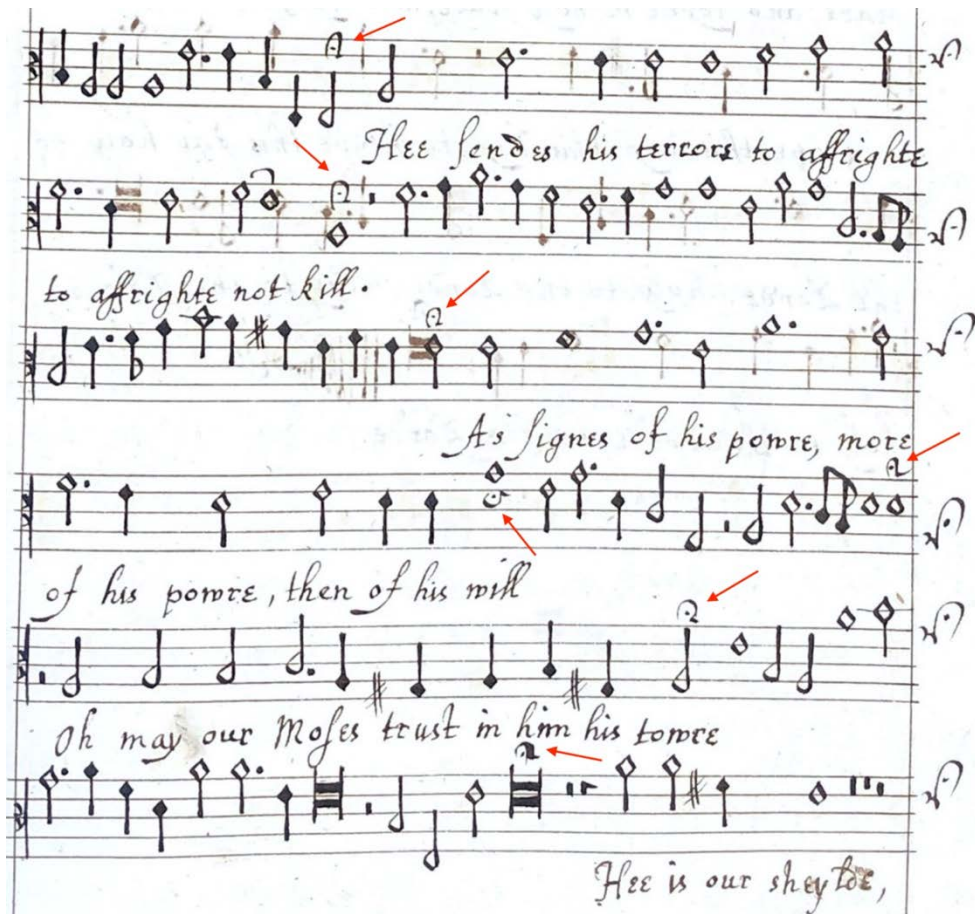 Hee sendes his terrors to affrighte
to affrighte not kill
As signes of his powre, more
of his powre, then of his will
Oh may our Moses trust in him his towre
Hee is our sheylde,